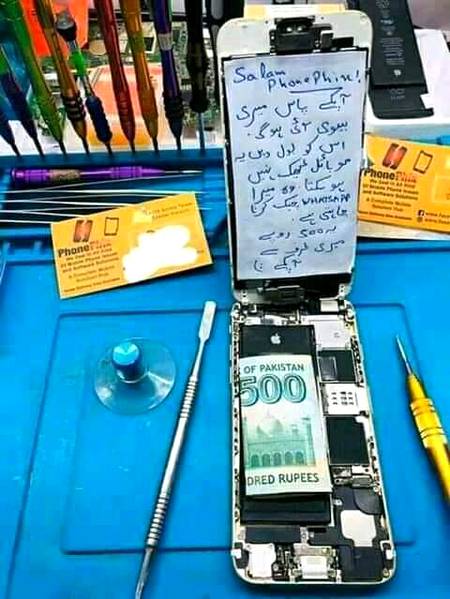 Salam
PhonePhix!
آپکے پاس میری
بیوی آئی ہوگی
اس کو بول دیں یہ
موبائل ٹھیک نہیں
ہو سکتا وہ میرا
WHATSAPP چیک کرنا
چاہتی ہے
یہ 500 روپے
میری طرف سے
آپکے
Phone
We Deal in All Kind
Of Mobile Phone Issues
and Software Solutions
A Complete Mobile
Solution Hub
Phone
We Deal in All Kind
Of Mobile Phone Issues
and Software Solutions
A Complete Mobile
Solution Hub
OF PAKISTAN
500
DRED RUPEES